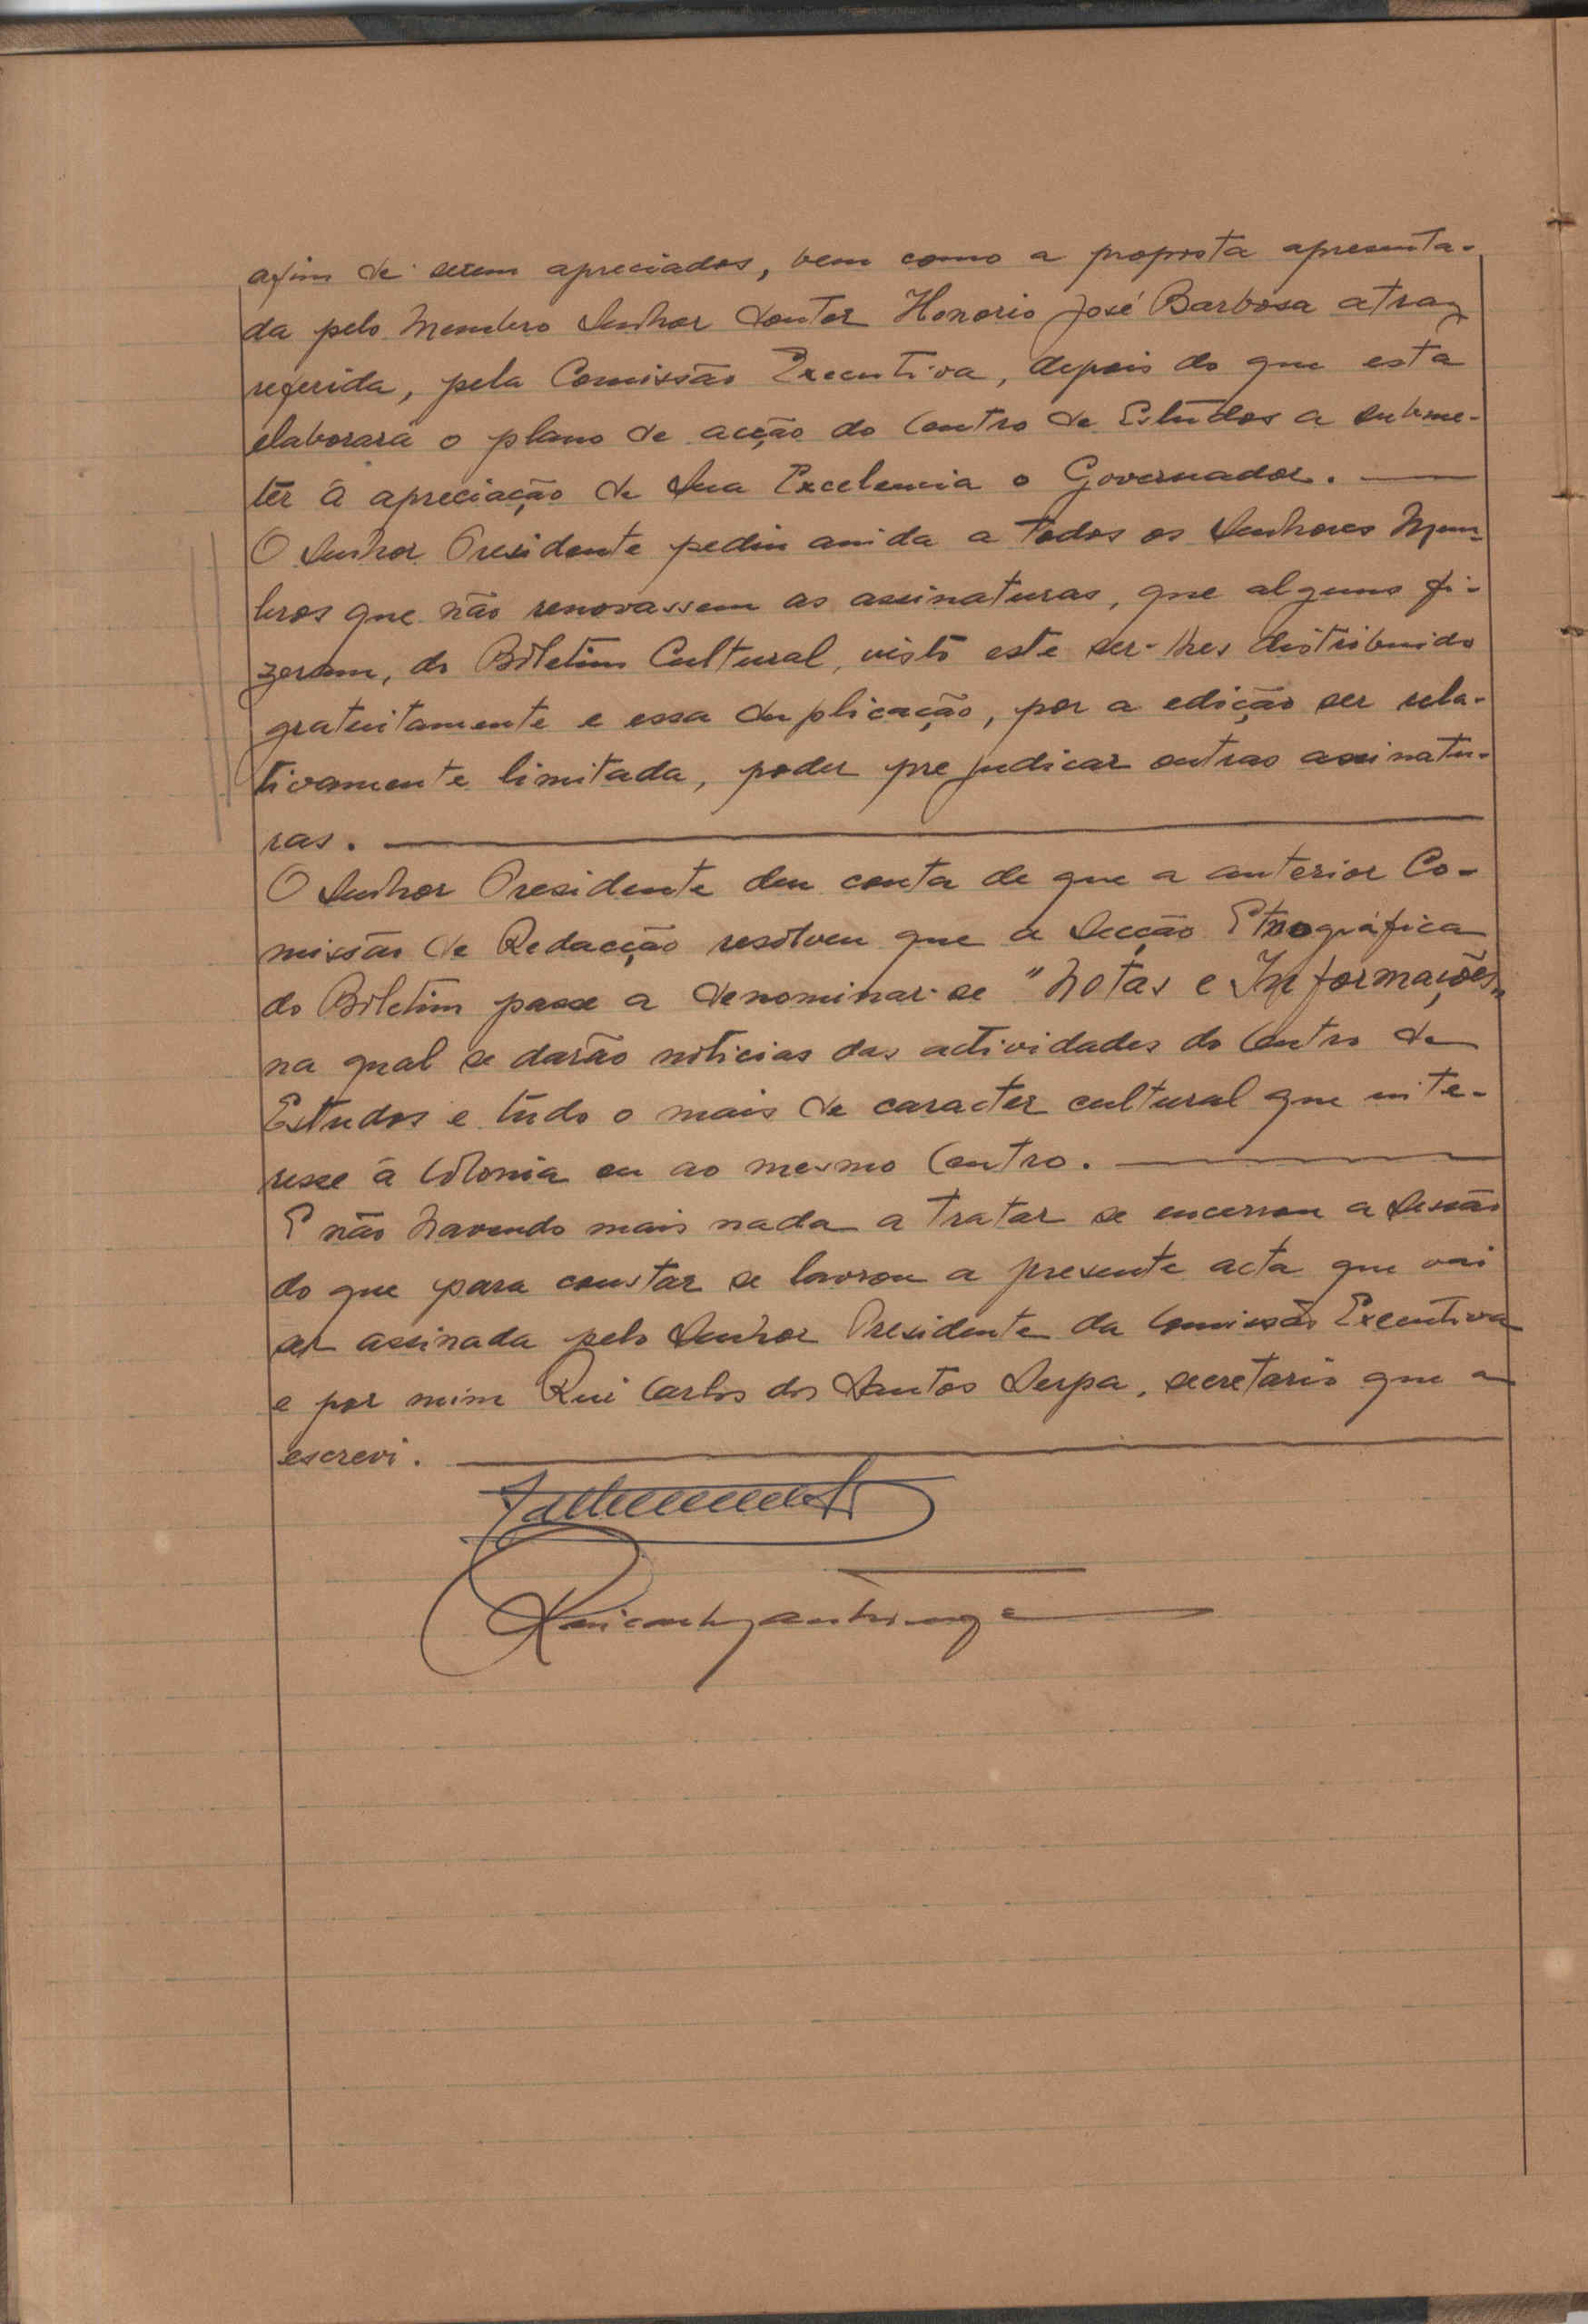 afim de serem apreciados, bem como a proposta apresenta-
da pelo Membro Senhor Doutor Honorio José Barbosa atraz
referida, pela Comissão Executiva, depois do que esta
elaborará o plano de acção do Centro de Estudos a subme-
ter à apreciação de Sua Excelencia o Governador.
O Senhor Presidente pediu ainda a todos os Senhores Mem-
bros que não renovassem as assinaturas, que alguns fi-
zeram, do Boletim Cultural, visto este ser-lhes distribuido
gratuitamente e essa duplicação, por a edição ser rela-
tivamente limitada, poder prejudicar outras assinatu-
ras.
O Senhor Presidente deu conta de que a anterior Co-
missão de Redacção resolveu que a Secção Etnográfica
do Boletim passe a denominar-se "Notas e Informações"
na qual se darão noticias das actividades do Centro de
Estudos e tudo o mais de caracter cultural que inte-
resse à Colonia ou ao mesmo Centro.
E não havendo mais nada a tratar se encerrou a sessão
do que para constar se lavrou a presente acta que vai
ser assinada pelo Senhor Presidente da Comissão Executiva
e por mim Rui Carlos dos Santos Serpa, secretario que a
escrevi.